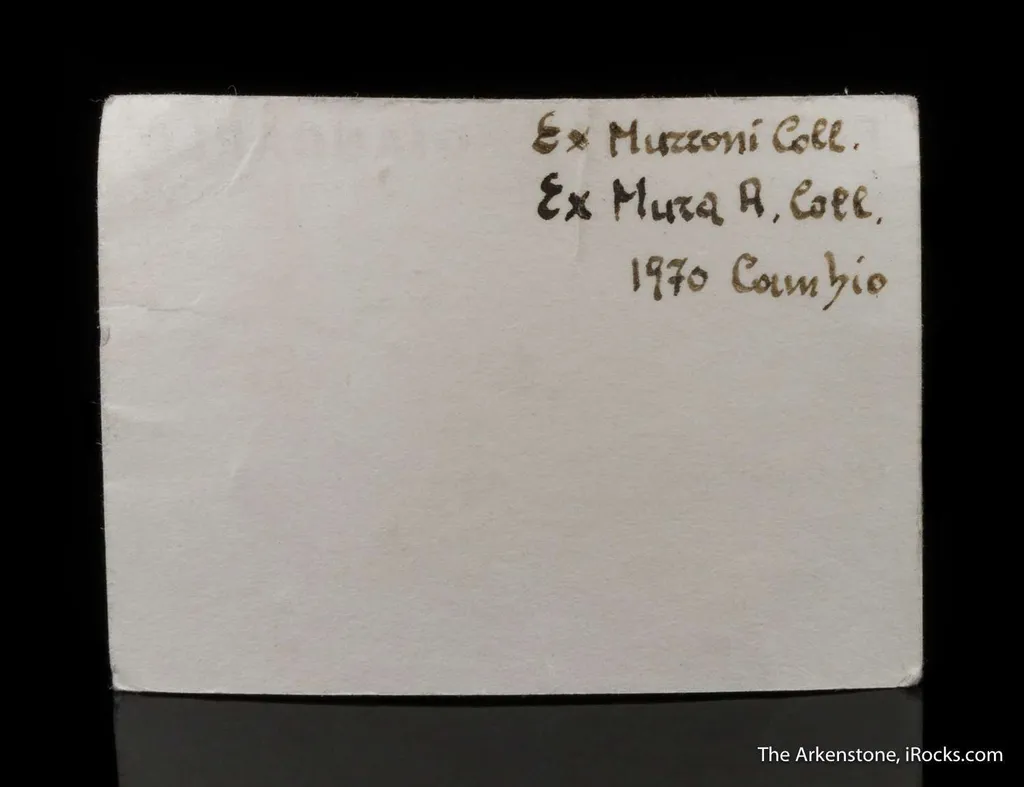 Ex Murzoni Coll.
Ex Mura A. Coll.
1970 Cambio
The Arkenstone, iRocks.com